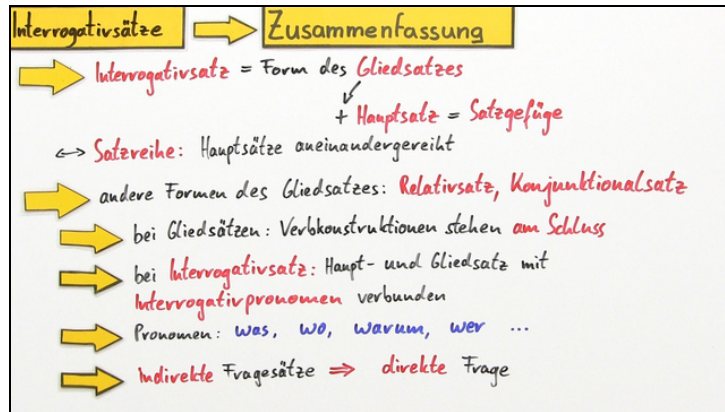 Interrogativsätze Zusammenfassung
Interrogativsatz = Form des Gliedsatzes
+ Hauptsatz = Satzgefüge
↔ Satzreihe: Hauptsätze aneinandergereiht
andere Formen des Gliedsatzes: Relativsatz, Konjunktionalsatz
bei Gliedsätzen: Verbkonstruktionen stehen am Schluss
bei Interrogativsatz: Haupt- und Gliedsatz mit
Interrogativpronomen verbunden
Pronomen: was, wo, warum, wer ...
Indirekte Fragesätze ⇒ direkte Frage